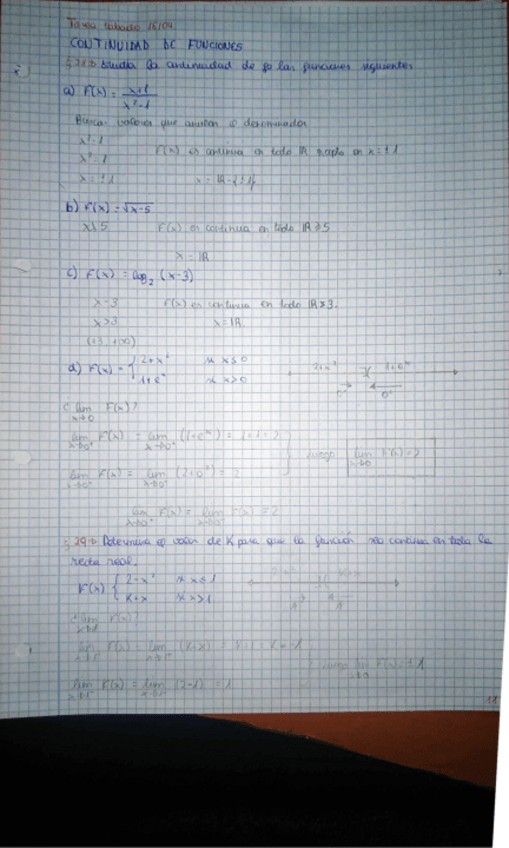 Tarea sábado 18/04.
CONTINUIDAD DE FUNCIONES
Estudia la continuidad de las funciones siguientes
a) F(x) = x+1 / x²-1
Buscar valores que anulan el denominador
x²-1
x² = 1 F(x) es continua en todo IR excepto en x = ±1
x = ±1 x = IR - {±1}
b) F(x) = √x-5
F(x) es continua en todo IR ≥ 5
x = IR
c) F(x) = log₂ (x-3)
x-3 F(x) es continua en todo IR ≥ 3.
x > 3 x = IR.
(+3, +∞)
d) F(x) = { 2+x² si x ≤ 0
1+eˣ si x > 0
¿ lim F(x)?
x→0
lim F(x) = lim (1+eˣ) = 1+1 = 2
lim F(x) = lim (2+0²) = 2
luego lim F(x) = 2
lim F(x) = lim F(x) = 2
Determina el valor de K para que la función sea continua en toda la
recta real.
F(x) { 2-x² si x ≤ 1
K+x si x > 1
lim F(x)?
lim F(x) = lim (K+x) =
lim F(x) = lim (2-1) = 1
11